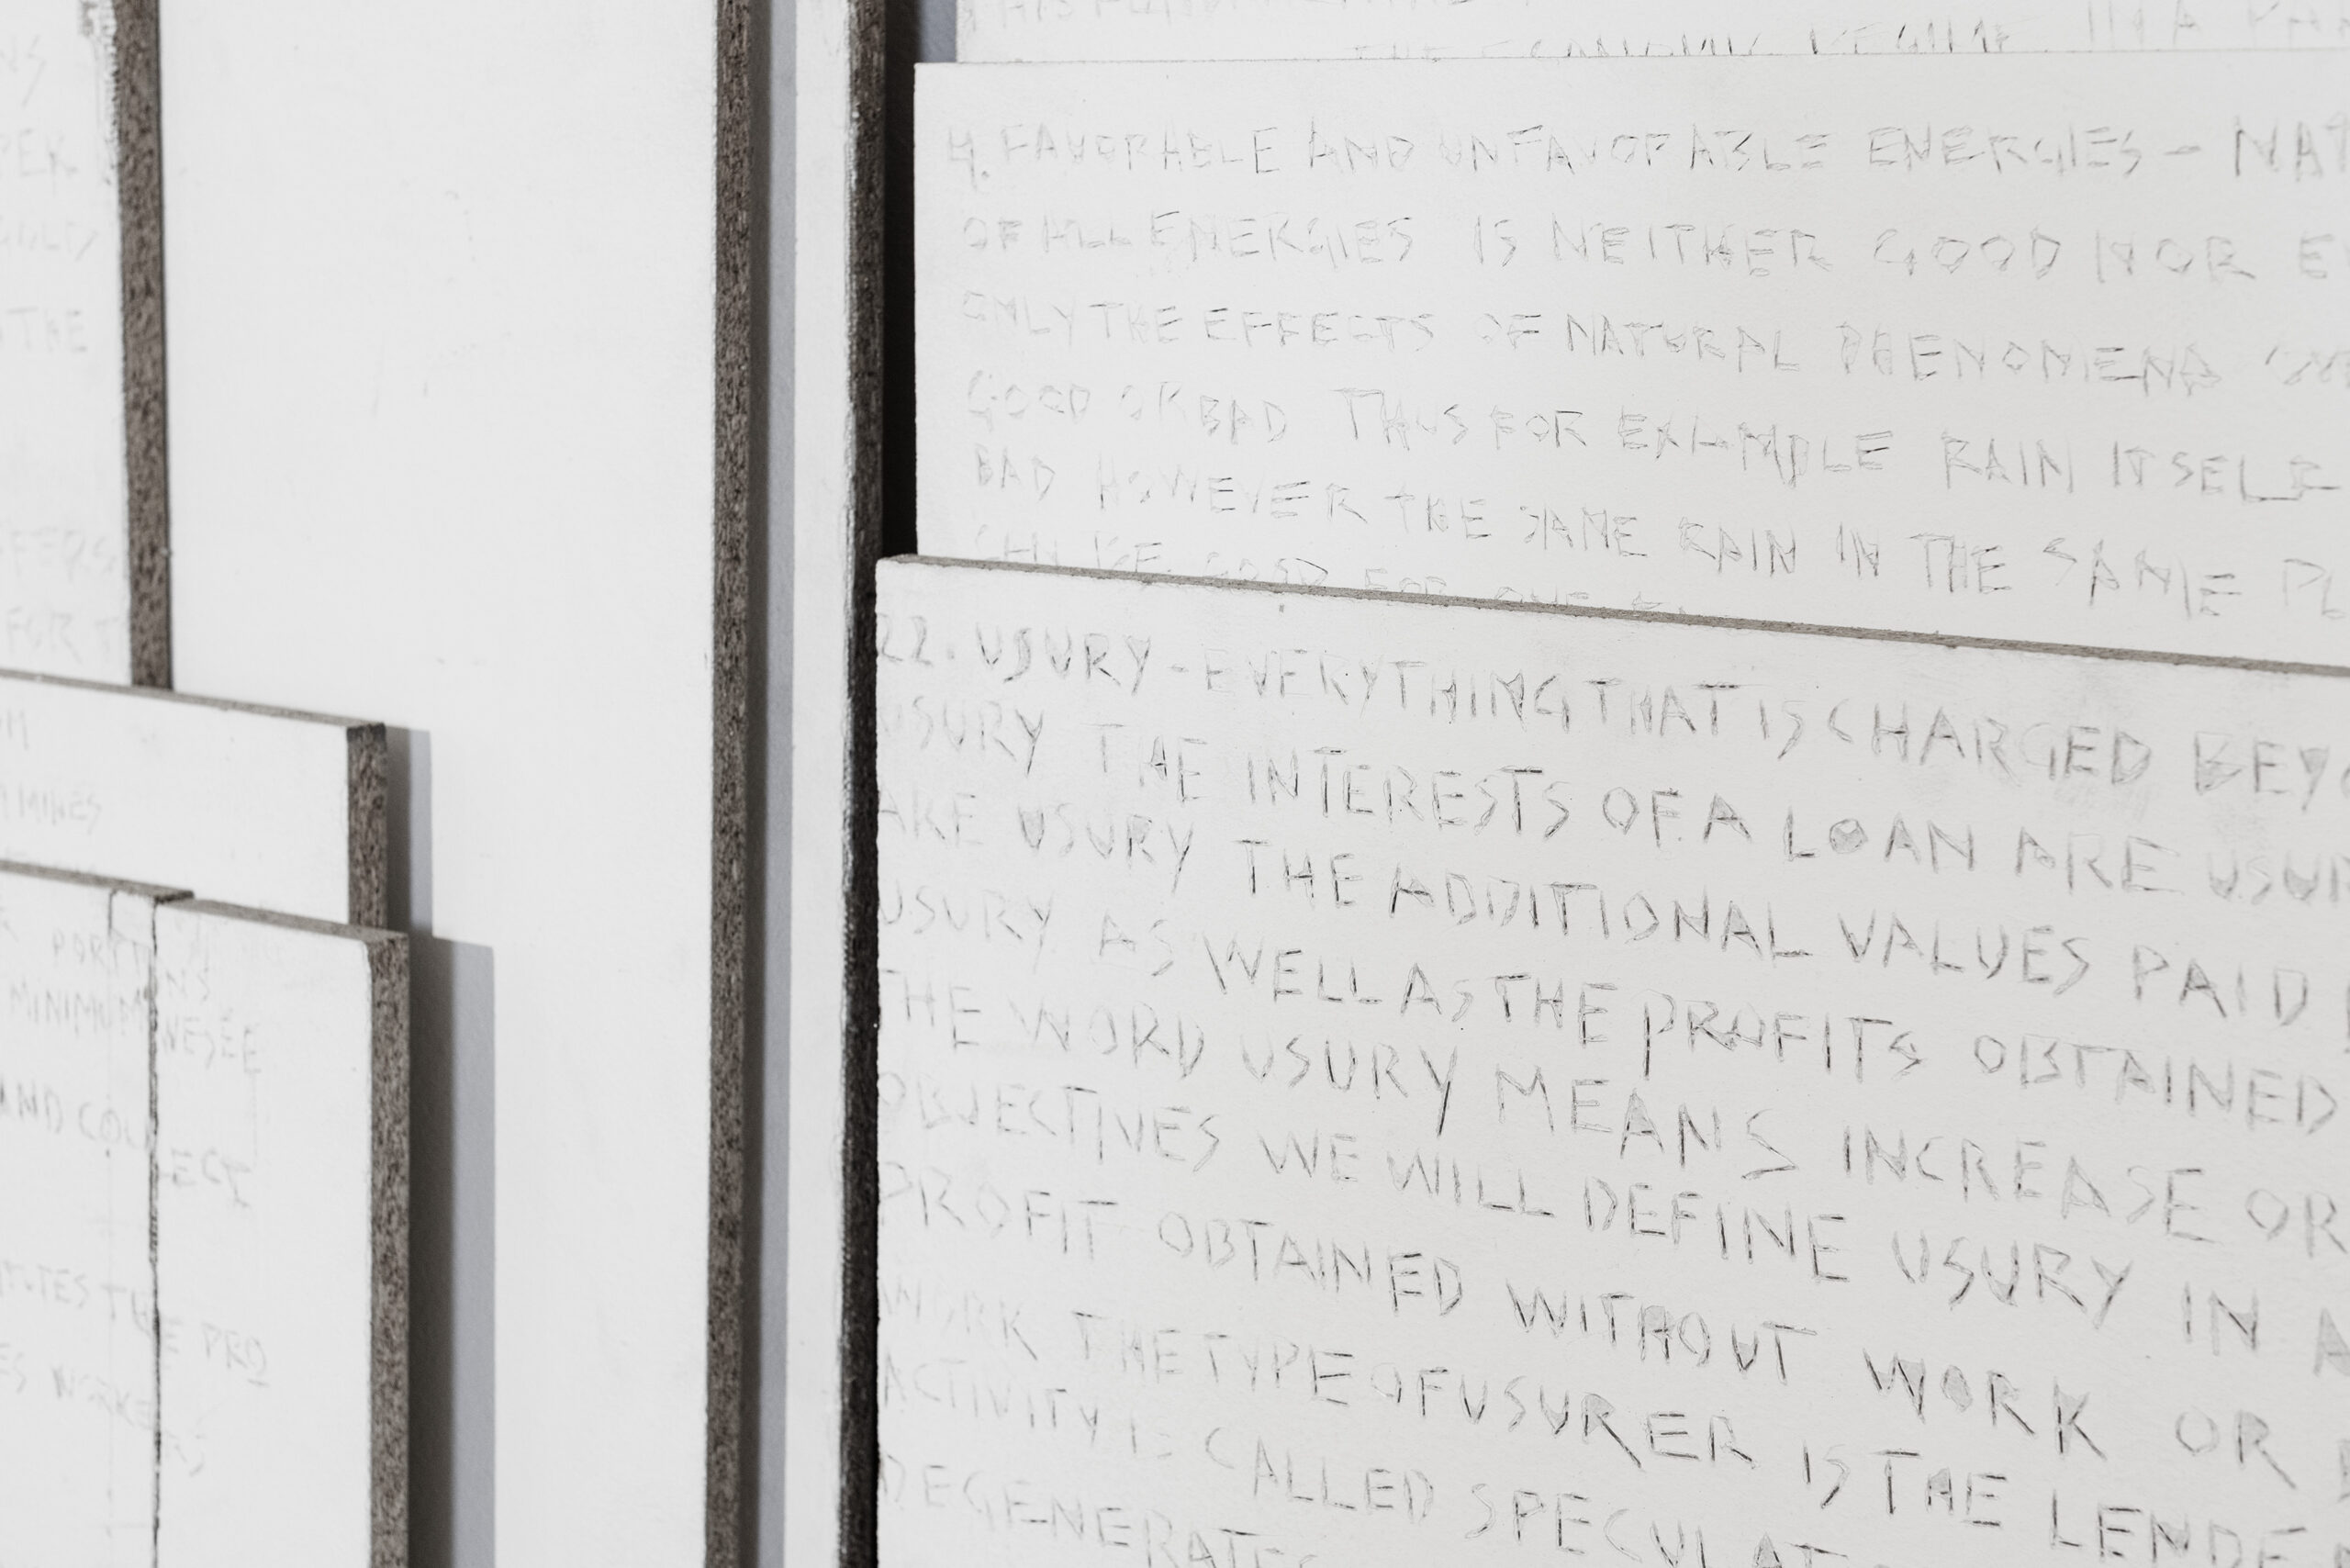 THE ECONOMIC REGIME IN A
4. FAVORABLE AND UNFAVORABLE ENERGIES - NAT
OF ALL ENERGIES IS NEITHER GOOD NOR E
ONLY THE EFFECTS OF NATURAL PHENOMENA
GOOD OR BAD THUS FOR EXAMPLE RAIN ITSELF
BAD HOWEVER THE SAME RAIN IN THE SAME PL
CAN BE GOOD FOR ONE
22. USURY - EVERYTHING THAT IS CHARGED BEYO
USURY THE INTERESTS OF A LOAN ARE USUR
ARE USURY THE ADDITIONAL VALUES PAID
USURY AS WELL AS THE PROFITS OBTAINED
THE WORD USURY MEANS INCREASE OR
OBJECTIVES WE WILL DEFINE USURY IN A
PROFIT OBTAINED WITHOUT WORK OR
WORK THE TYPE OF USURER IS THE LENDE
ACTIVITY IS CALLED SPECULAT
DEGENERATES
PER
GOLD
THE
FOR T
MINES
PORTIONS
MINIMUM NESEE
AND COLLECT
UTES THE PRO
ES WORKERS